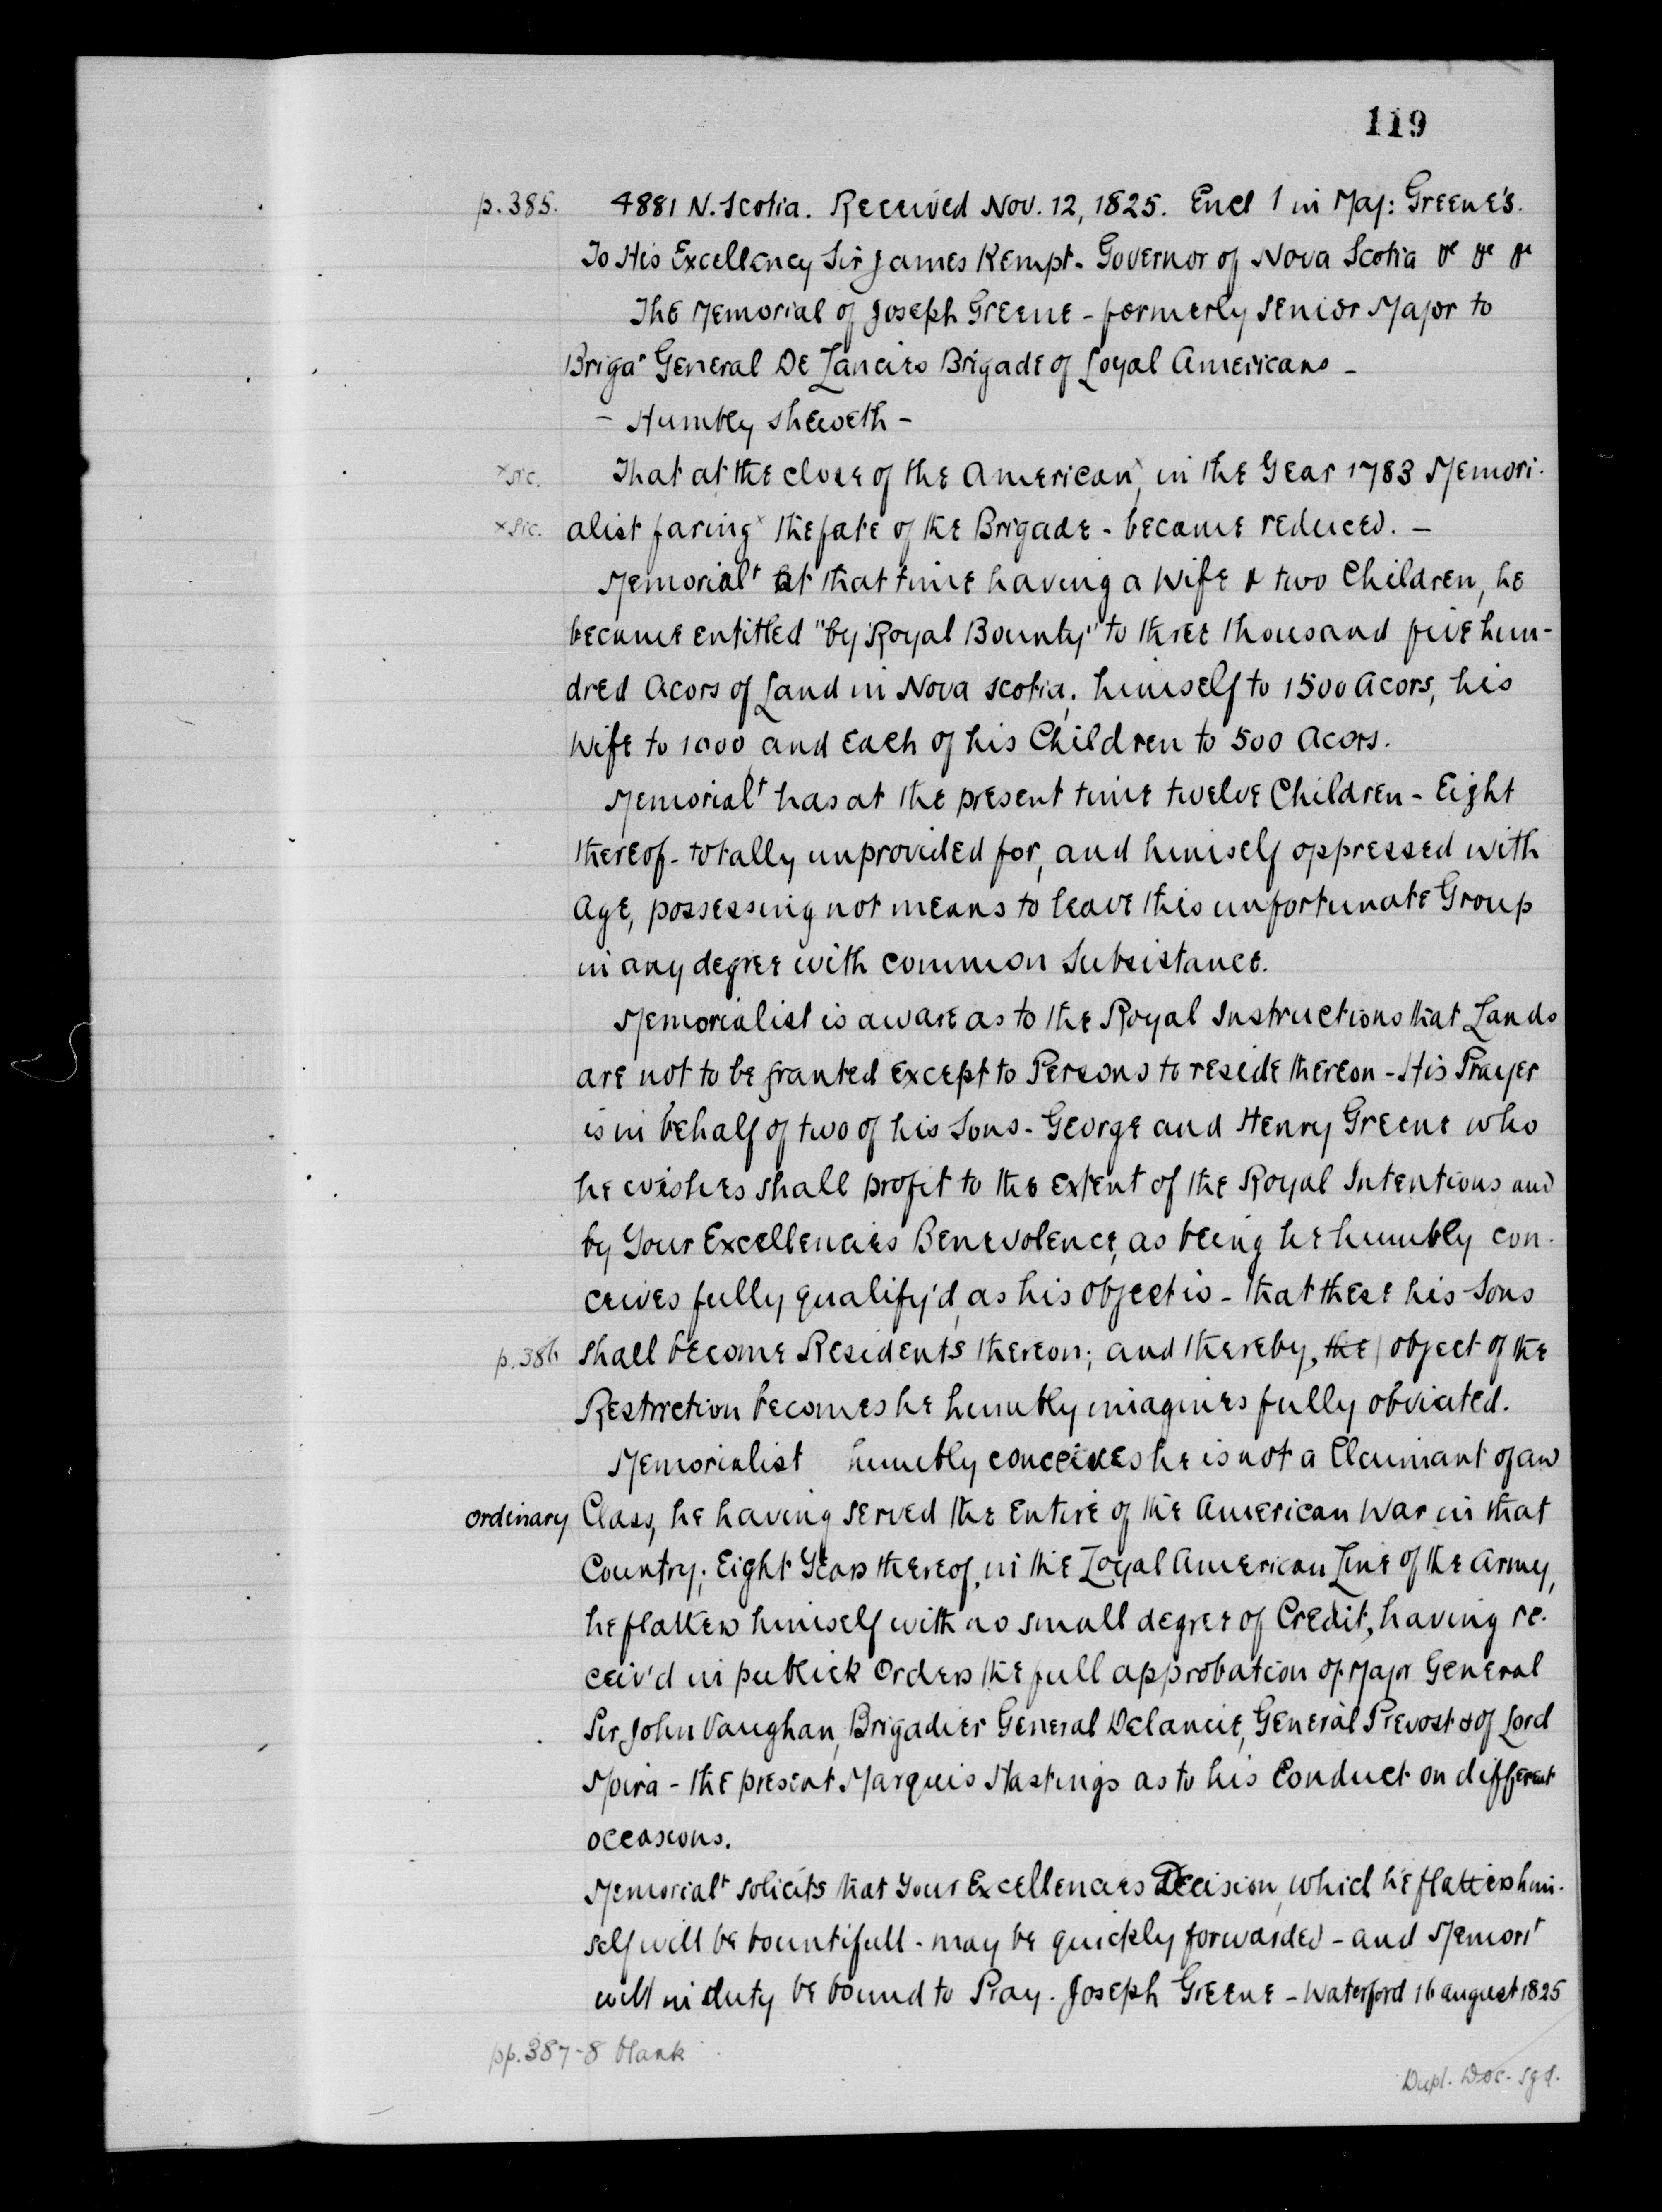 119
p.385. 4881 N. Scotia. Received Nov. 12, 1825. Encl 1 in Maj: Greene's.
To His Excellency Sir James Kempt. Governor of Nova Scotia &c &c &c
The Memorial of Joseph Greene - formerly Senior Major to
Brigar General De Lancies Brigade of Loyal Americans -
- Humbly sheweth -
x sic. That at the close of the Americanx, in the Year 1783 Memori-
x sic. alist faringx the fate of the Brigade - became reduced. -
Memorialt at that time having a Wife & two Children, he
became entitled "by Royal Bounty" to three thousand five hun-
dred Acors of Land in Nova Scotia, himself to 1500 Acors, his
Wife to 1000 and Each of his Children to 500 Acors.
Memorialt has at the present time twelve Children - Eight
thereof - totally unprovided for, and himself oppressed with
Age, possessing not means to leave this unfortunate Group
in any degree with common Subsistance.
Memorialist is aware as to the Royal Instructions that Lands
are not to be granted except to Persons to reside thereon - His Prayer
is in behalf of two of his Sons - George and Henry Greene who
he wishes shall profit to the extent of the Royal Intentions and
by Your Excellencies Benevolence, as being he humbly con-
ceives fully qualify'd, as his object is - that these his Sons
p.386 shall become Residents thereon; and thereby, the | object of the
Restriction becomes he humbly imagines fully obviated.
Memorialist humbly conceives he is not a Claimant of an
ordinary Class, he having served the Entire of the American War in that
Country; Eight Years thereof, in the Loyal American Line of the Army,
he flatters himself with no small degree of Credit, having re-
ceiv'd in publick Orders the full approbation of Major General
Sir John Vaughan, Brigadier General Delancie, General Prevost & of Lord
Moira - the present Marquis Hastings as to his Conduct on different
occasions.
Memorialt solicits that Your Excellencies Decision, which he flatters him-
self will be bountifull - may be quickly forwarded - and Memorit
will in duty be bound to Pray. Joseph Greene - Waterford 16 August 1825
pp.387-8 blank
Dupl. Doc. sgd.